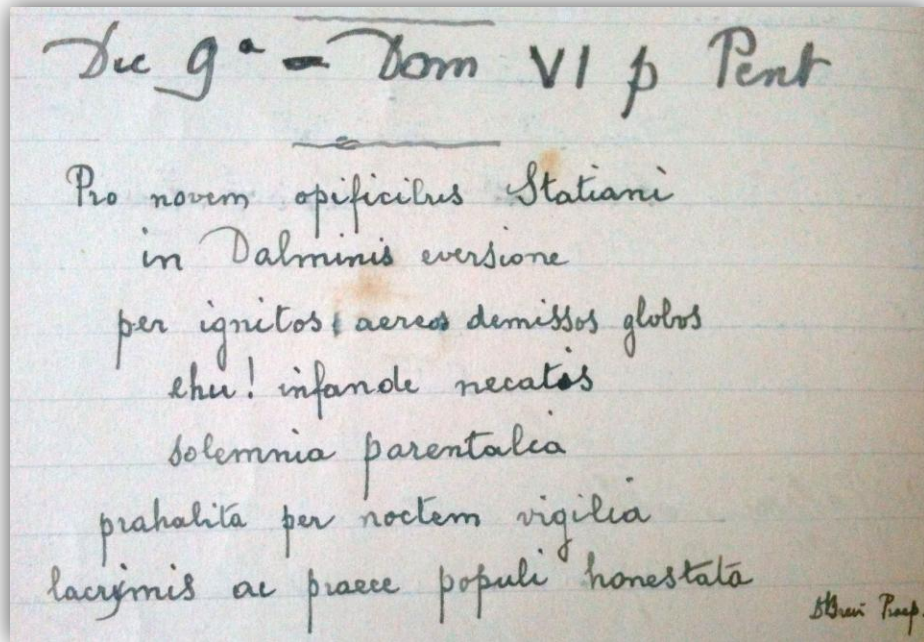 Die 9ª - Dom VI p Pent
Pro novem opificibus Statiani
in Dalminis eversione
per ignitos aereos demissos globos
eheu! infande necatis
solemnia parentalia
prahabita per noctem vigilia
lacrymis ac praece populi honestata